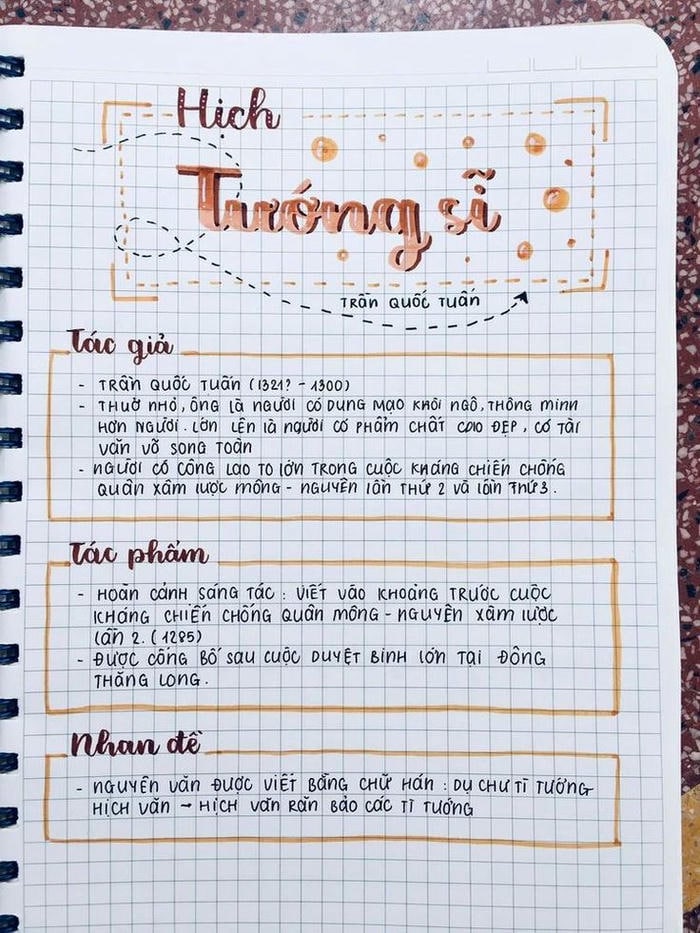 Hịch
Tướng sĩ
TRẦN QUỐC TUẤN
Tác giả
- TRẦN QUỐC TUẤN (1321? - 1300)
- THUở NHỎ, ÔNG LÀ NGƯỜI CÓ DUNG MẠO KHÔI NGÔ, THÔNG MINH
HƠN NGƯỜI. LỚN LÊN LÀ NGƯỜI CÓ PHẨM CHẤT CAO ĐẸP, CÓ TÀI
VĂN VÕ SONG TOÀN
- NGƯỜI CÓ CÔNG LAO TO LỚN TRONG CUỘC KHÁNG CHIẾN CHỐNG
QUÂN XÂM LƯỢC MÔNG - NGUYÊN LẦN THỨ 2 VÀ LẦN THỨ 3.
Tác phẩm
- HOÀN CẢNH SÁNG TÁC: VIẾT VÀO KHOẢNG TRƯỚC CUỘC
KHÁNG CHIẾN CHỐNG QUÂN MÔNG - NGUYÊN XÂM LƯỢC
LẦN 2. (1285)
- ĐƯỢC CÔNG BỐ SAU CUỘC DUYỆT BINH LỚN TẠI ĐÔNG
THĂNG LONG.
Nhan đề
- NGUYÊN VĂN ĐƯỢC VIẾT BẰNG CHỮ HÁN: DỤ CHƯ TÌ TƯỚNG
HỊCH VĂN → HỊCH VĂN RĂN BẢO CÁC TÌ TƯỚNG